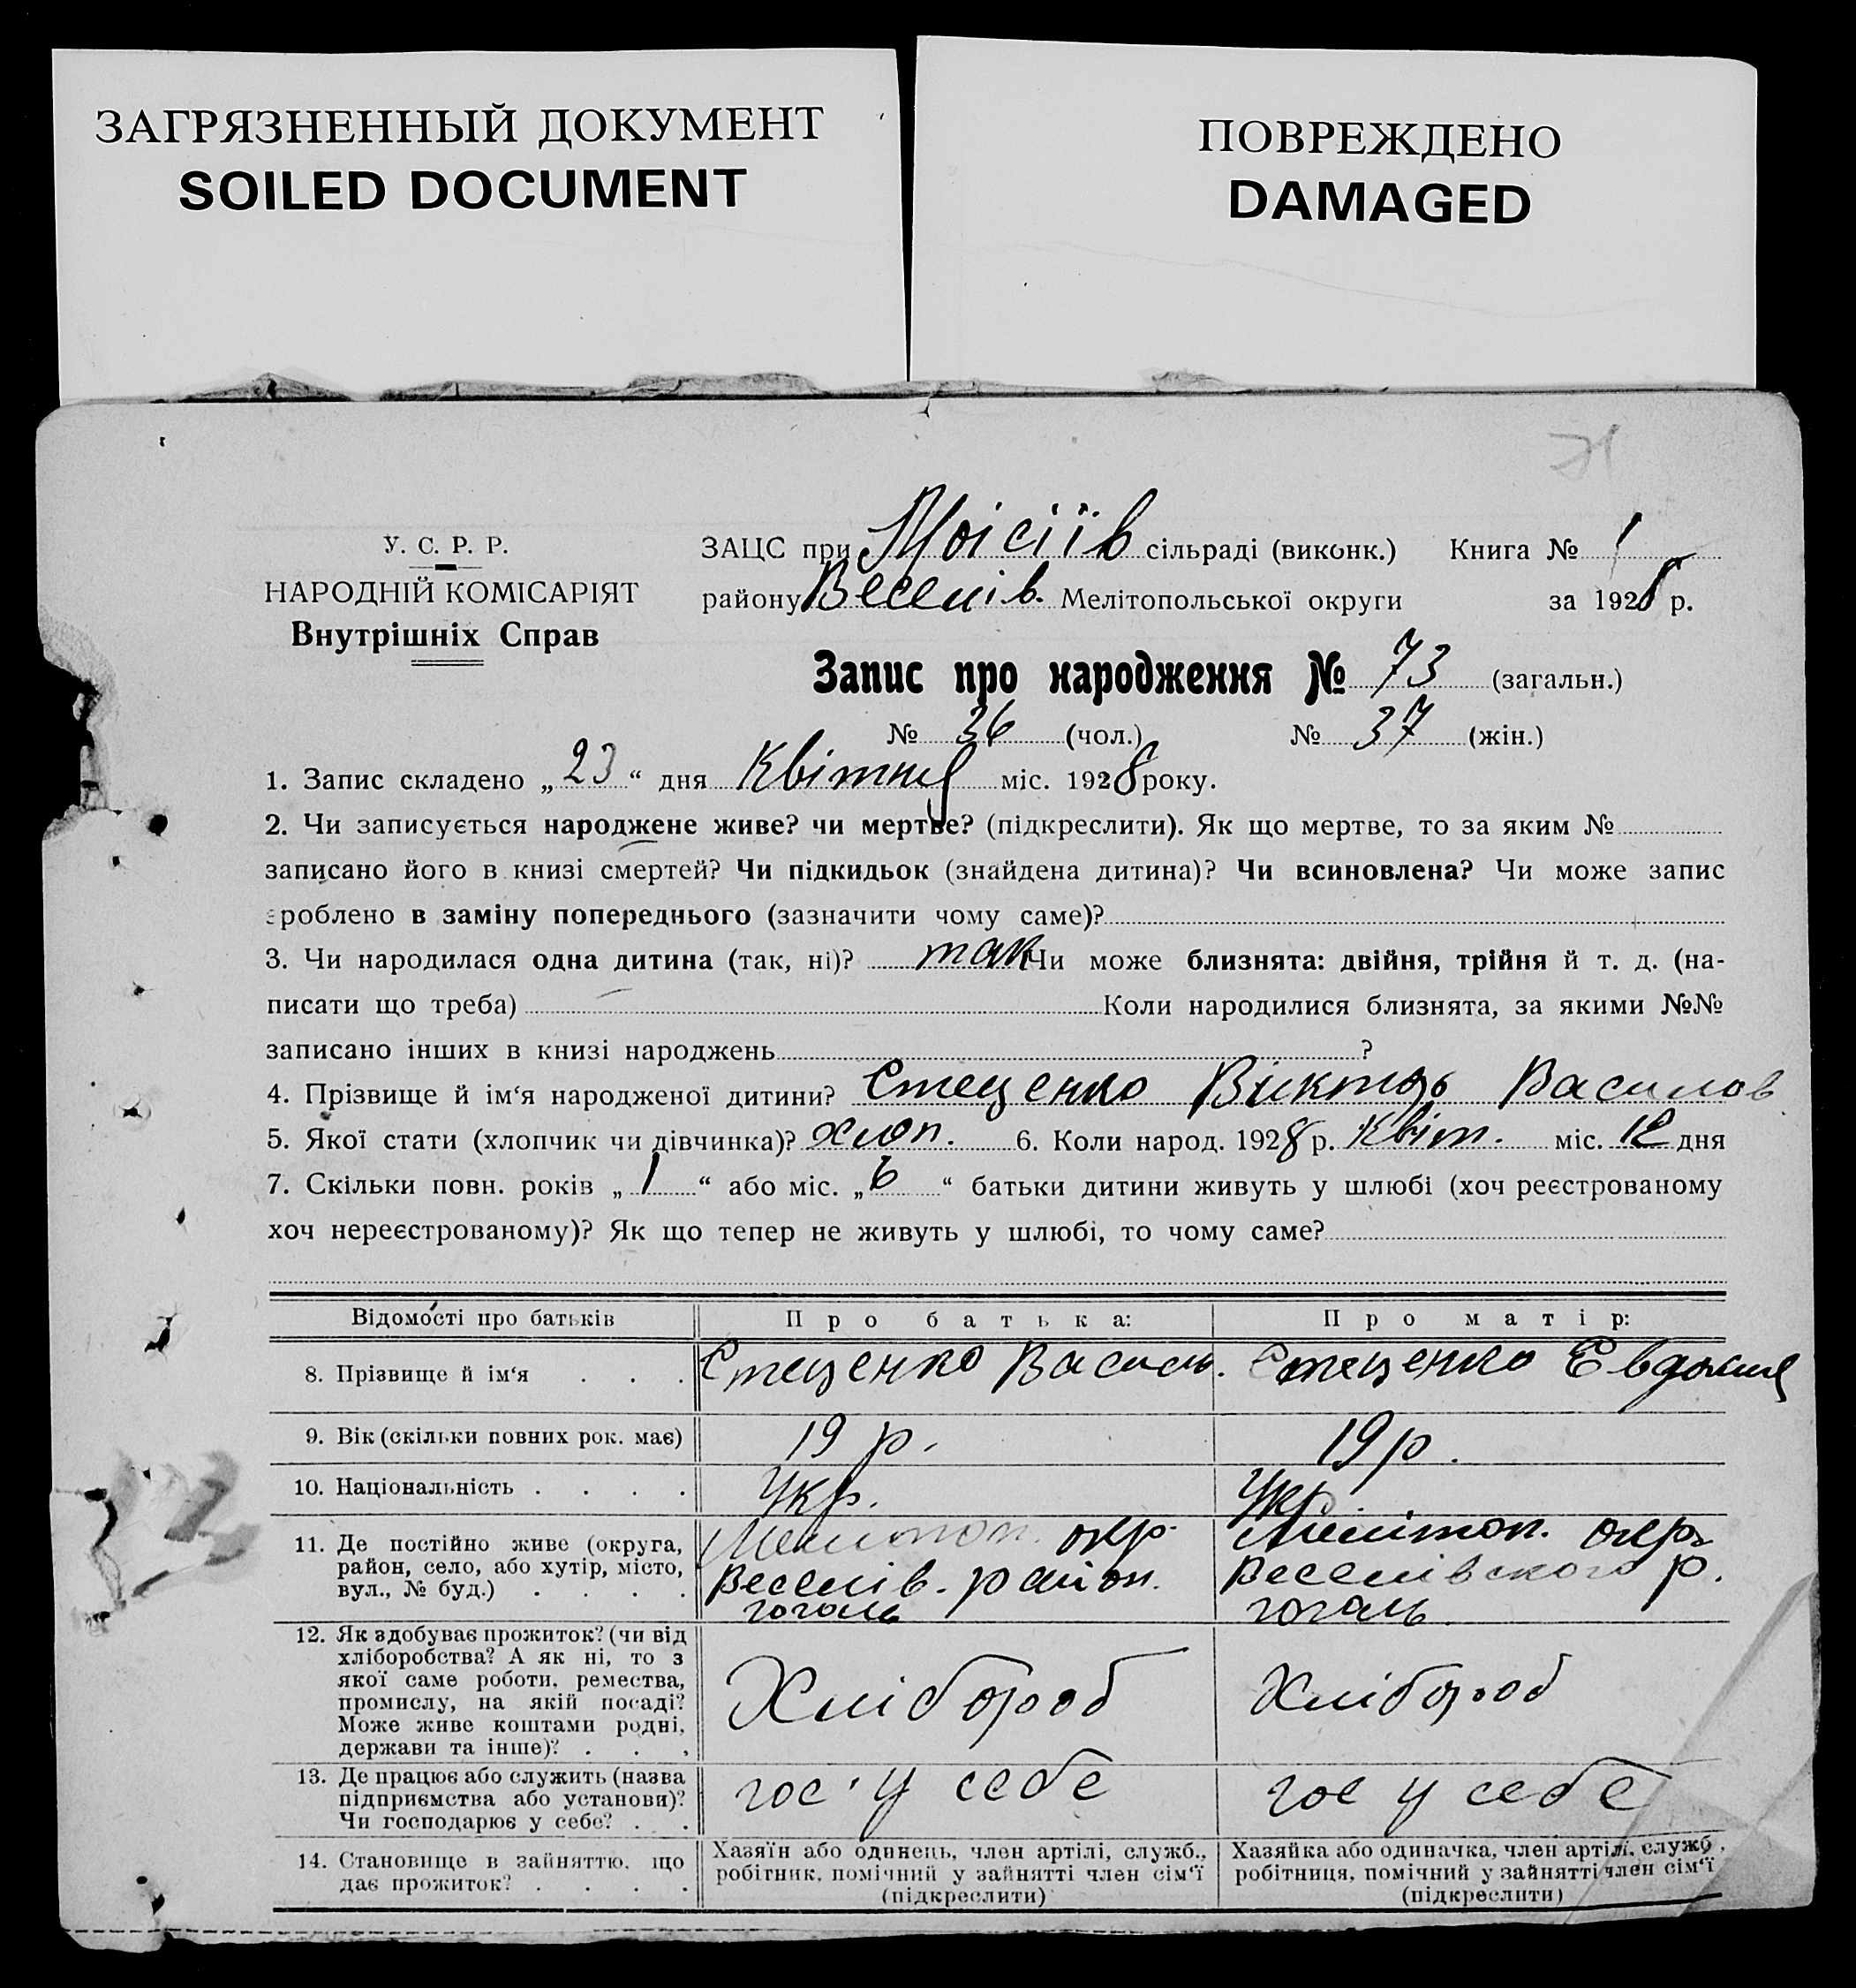 ЗАГРЯЗНЕННЫЙ ДОКУМЕНТ
SOILED DOCUMENT
ПОВРЕЖДЕНО
DAMAGED
У. С. Р. Р.
НАРОДНІЙ КОМІСАРІЯТ
Внутрішніх Справ
ЗАЦС при Моісіїв сільраді (виконк.) Книга № 1
району Веселів. Мелітопольської округи за 1928 р.
Запис про народження № 73 (загальн.)
№ 36 (чол.) № 37 (жін.)
1. Запис складено „23“ дня Квітня міс. 1928 року.
2. Чи записується народжене живе? чи мертве? (підкреслити). Як що мертве, то за яким №
записано його в книзі смертей? Чи підкидьок (знайдена дитина)? Чи всиновлена? Чи може запис
зроблено в заміну попереднього (зазначити чому саме)?
3. Чи народилася одна дитина (так, ні)? так Чи може близнята: двійня, трійня й т. д. (на-
писати що треба) Коли народилися близнята, за якими №№
записано інших в книзі народжень ?
4. Прізвище й ім‘я народженої дитини? Стеценко Віктор Василов
5. Якої стати (хлопчик чи дівчинка)? хлоп. 6. Коли народ. 1928 р. Квіт. міс. 12 дня
7. Скільки повн. років „1“ або міс. „6“ батьки дитини живуть у шлюбі (хоч реєстрованому
хоч нереєстрованому)? Як що тепер не живуть у шлюбі, то чому саме?
Відомості про батьків Про батька: Про матір:
8. Прізвище й ім‘я . . . Стеценко Василь. Стеценко Евдокия
9. Вік (скільки повних рок. має) 19 р. 19 р.
10. Національність . . . . Укр. Укр.
11. Де постійно живе (округа,
район, село, або хутір, місто,
вул., № буд.) . . . .
Мелітоп. окр.
Веселів. район.
гоголь
Мелітоп. окр.
Веселівского р.
гоголь
12. Як здобуває прожиток? (чи від
хліборобства? А як ні, то з
якої саме роботи, ремества,
промислу, на якій посаді?
Може живе коштами родні,
держави та інше)? . . .
Хлібороб
Хлібороб
13. Де працює або служить (назва
підприємства або установи)?
Чи господарює у себе? . .
гос. у себе
гос у себе
14. Становище в зайняттю, що
дає прожиток? . . . .
Хазяїн або одинець, член артілі, служб.,
робітник, помічний у зайнятті член сім‘ї
(підкреслити)
Хазяйка або одиначка, член артілі, служб.,
робітниця, помічний у зайнятті член сім‘ї
(підкреслити)